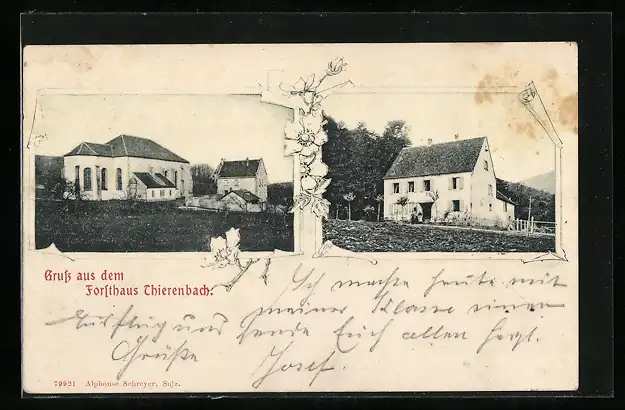 Gruß aus dem
Forsthaus Thierenbach.
Ich mache heute mit
meiner Klasse einen
Ausflug und sende Euch allen herzl.
Grüße Josef.
79921 Alphonse Schreyer, Sulz.